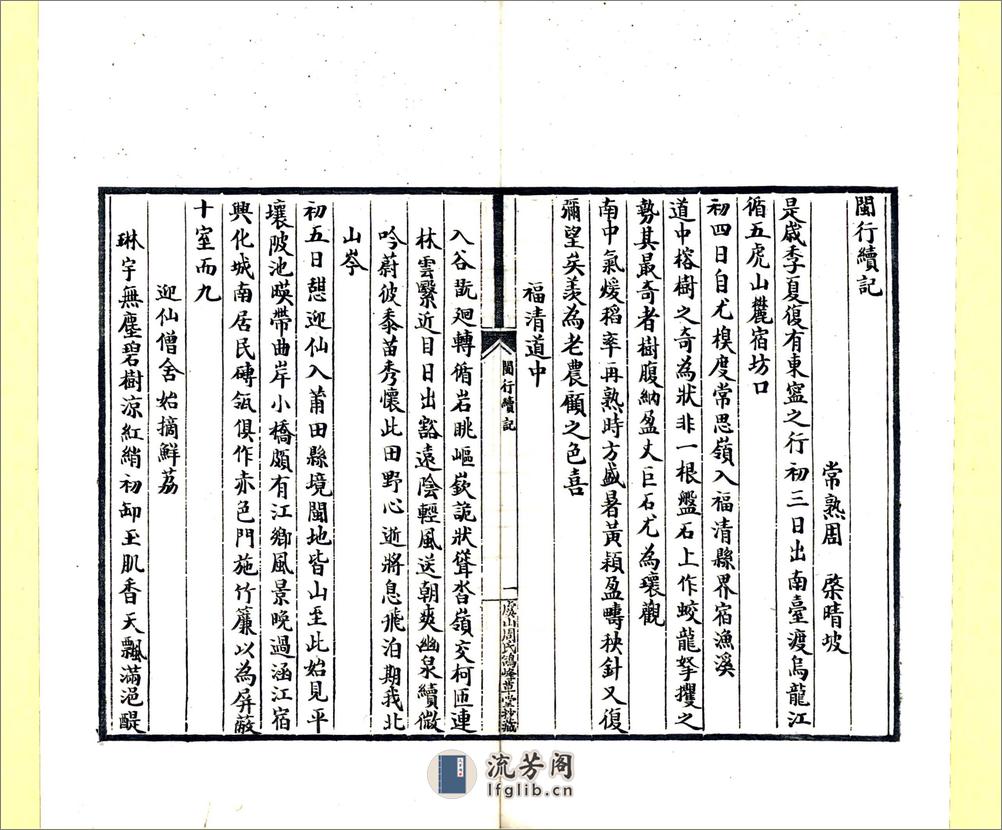 閩行續記
常熟周　棨晴坡
是歲季夏復有東寧之行初三日出南臺渡烏龍江
循五虎山麓宿坊口
初四日自尤模度常思嶺入福清縣界宿漁溪
道中榕樹之奇為狀非一根盤石上作蛟龍拏攫之
勢其最奇者樹腹納盈丈巨石尤為瓌觀
南中氣煖稻率再熟時方盛暑黃穎盈疇秧針又復
彌望矣羨為老農顧之色喜
福清道中
入谷翫迴轉循岩眺嶇嶔詭狀聳沓嶺交柯匝連
林雲繄近目日出豁遠陰輕風送朝爽幽泉續微
吟蔚彼黍苗秀懷此田野心逝將息飛泊期我北
山岑
初五日憩迎仙入莆田縣境閩地皆山至此始見平
壤陂池暎帶曲岸小橋頗有江鄉風景晚過涵江宿
興化城南居民磚瓴俱作赤色門施竹簾以為屏蔽
十室而九
迎仙僧舍始摘鮮荔
琳宇無塵碧樹涼紅綃初卸玉肌香天飄滿浥醍
閩行續記
一
虞山周氏鴿峰草堂鈔藏
流芳阁
lfglib.cn